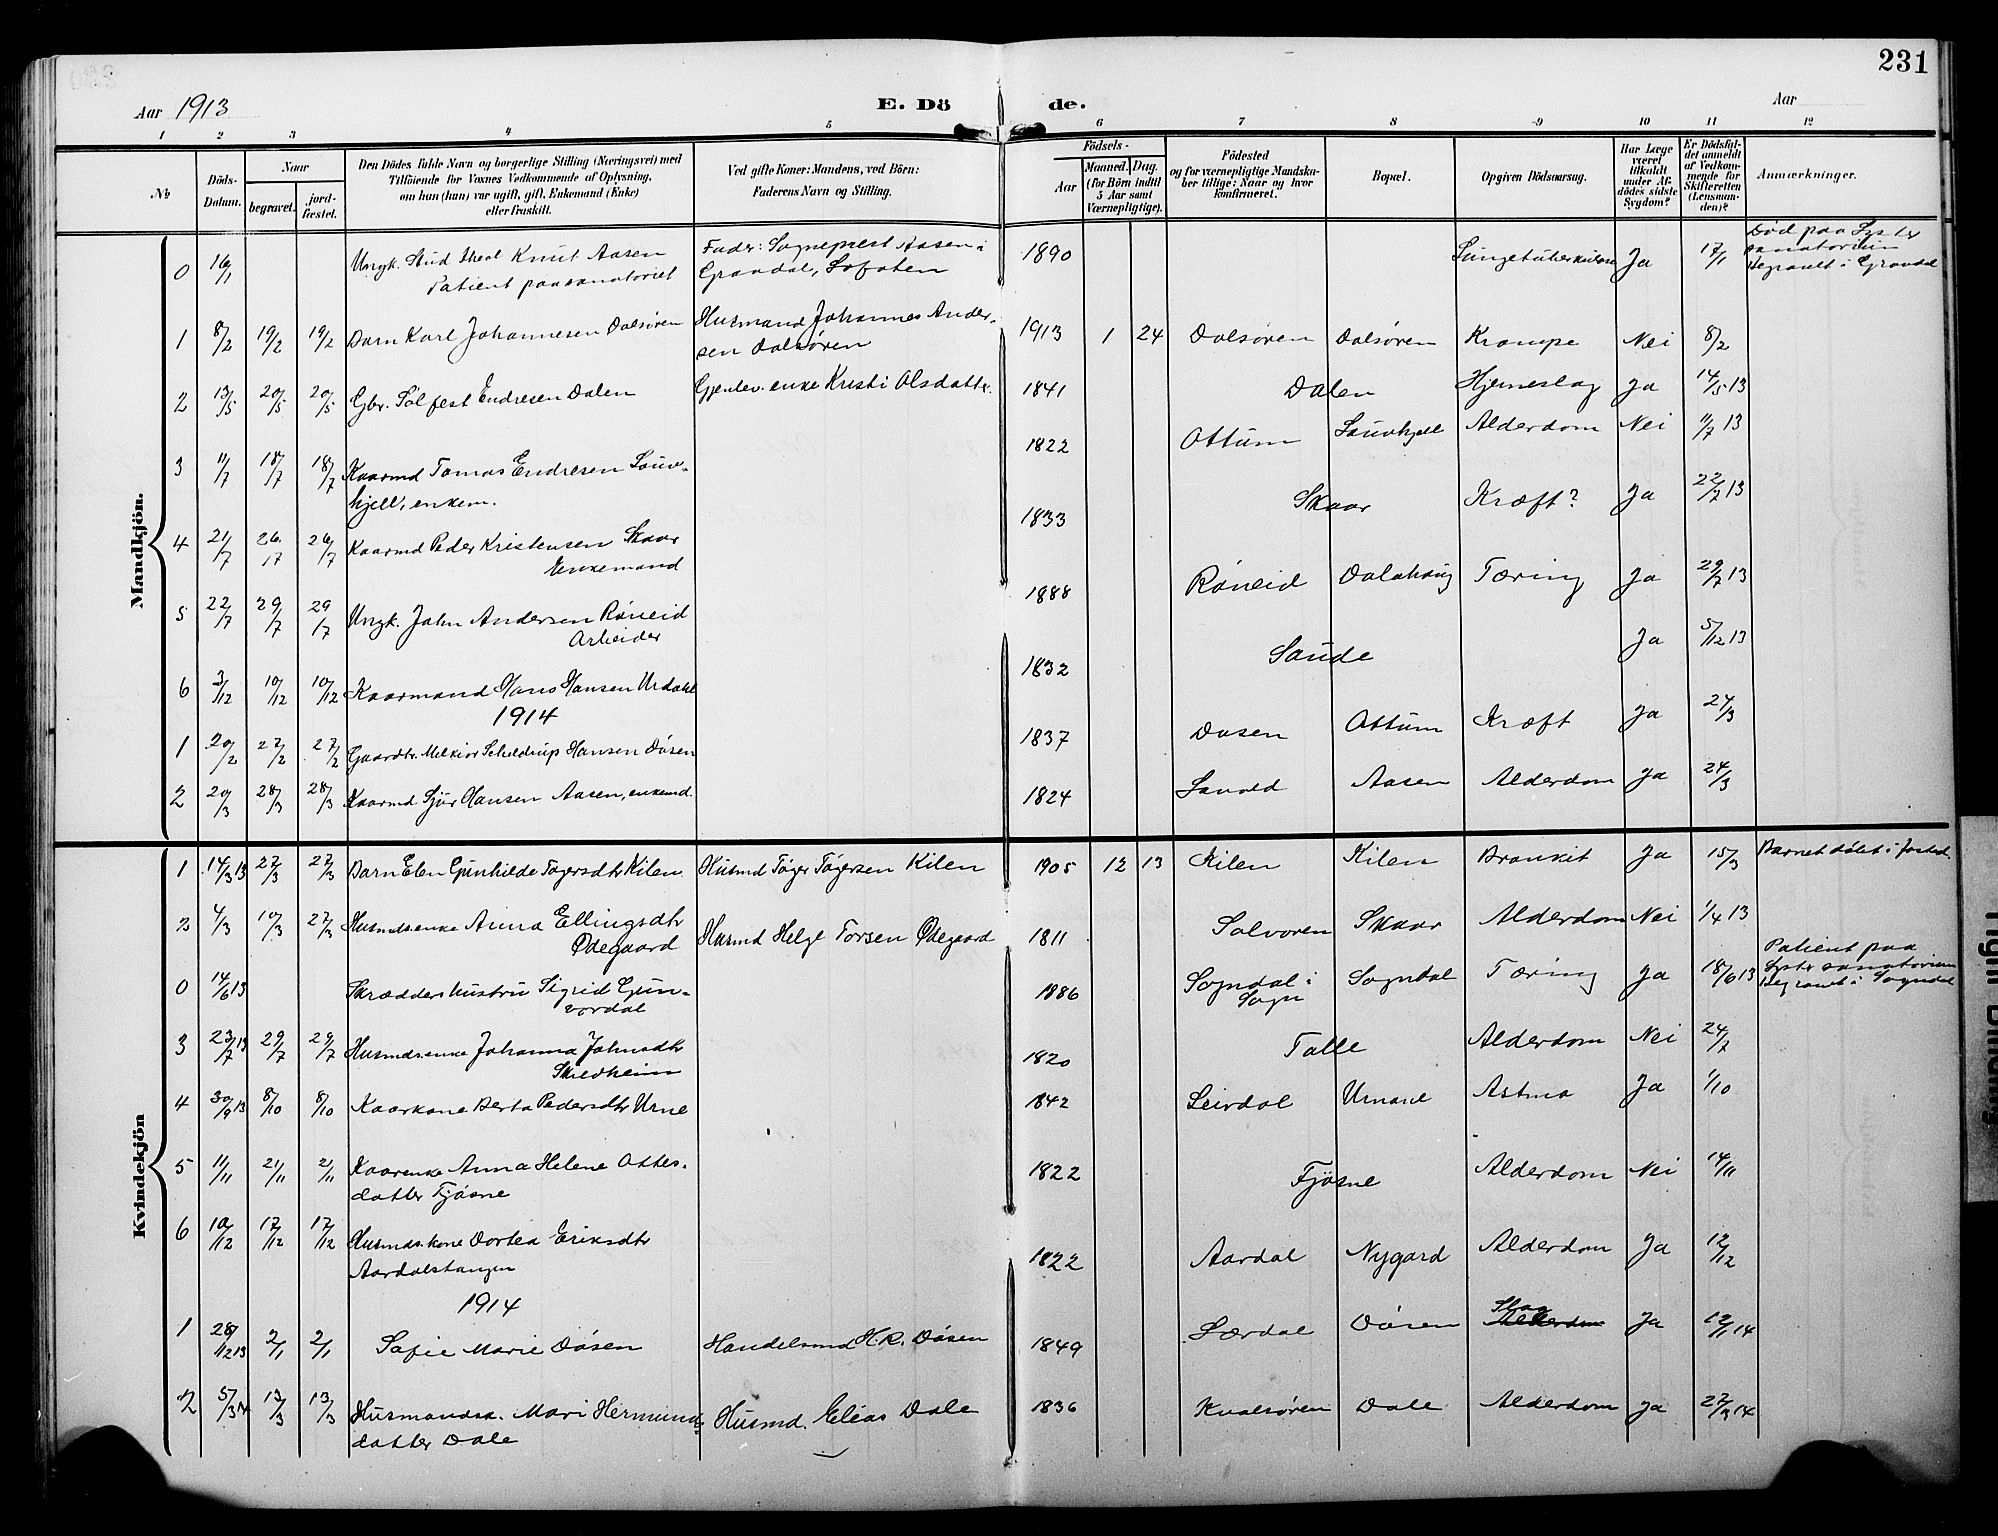 231
Aar 1913 E. Dö de. Aar
1 2 3 4 5 6 7 8 9 10 11 12
№
Döds-Datum.
Naar
begravet.
jord-fæstet.
Den Dödes fulde Navn og borgerlige Stilling (Næringsvei) med
Tilföiende for Voxnes Vedkommende af Oplysning,
om han (hun) var ugift, gift, Enkemand (Enke)
eller fraskilt.
Ved gifte Koner: Mandens, ved Börn:
Faderens Navn og Stilling.
Födsels-
Aar
Maaned. Dag.
(for Börn indtil
5 Aar samt
Værnepligtige).
Födested
og for værnepligtige Mandska-
ber tillige: Naar og hvor
konfirmeret.
Bopæl.
Opgiven Dödsaarsag.
Har Læge
været
tilkaldt
under Af-
dödes sidste
Sygdom?
Er Dödsfal-
det anmeldt
af Vedkom-
mende for
Skifteretten
(Lensman-
den)?
Anmærkninger.
Mandkjön.
0 16/1 Ungk. Stud theol Knut Aasen Fader: Sogneprest Aasen i 1890 Lungetuberkulose Ja 17/1 Död paa Lyster
Patient paa sanatoriet Gravdal, Lofoten sanatorium
Begravet i Gravdal
1 8/2 19/2 19/2 Barn Karl Johannesen Dalsøren Husmand Johannes Ander- 1913 1 24 Dalsøren Dalsøren Krampe Nei 8/2
sen Dalsøren
2 13/5 20/5 20/5 Gbr. Sølfest Endresen Dalen Gjenlev. enke Kristi Olsdattr. 1841 Dalen Hjerneslag Ja 14/5 13
3 11/7 18/7 18/7 Kaarmd Tomas Endresen Sauv- 1822 Ottum Sauvhjell Alderdom Nei 11/7 13
hjell, enkem.
4 21/7 26/7 26/7 Kaarmd Peder Kristensen Skaar 1833 Skaar Kræft? Ja 22/2 13
Enkemand
5 22/7 29/7 29/7 Ungk. John Andersen Røneid 1888 Røneid Dalahaug Tæring Ja 29/7 13
Arbeider
6 3/12 10/12 10/12 Kaarmand Hans Hansen Urdahl 1832 Sande Ja 5/12 13
1914
1 20/2 27/2 27/2 Gaardbr. Melkior Scheldrup Hansen Døsen 1837 Døsen Ottum Kræft Ja 24/3
2 20/3 28/3 28/3 Kaarmd Sjur Hansen Aasen, enkemd. 1824 Sandvold Aasen Alderdom Ja 24/3
Kvindekjön
1 14/3 13 27/3 27/3 Barn Elen Gunhilde Tøgersdtr Kilen Husmd Tøger Tøgersen Kilen 1905 12 13 Kilen Kilen Bronkit Ja 15/3 Barnet døbt i Jostedal
2 4/3 10/3 27/3 Husmdsenke Anna Ellingsdtr Husmd Helge Torsen Ødegaard 1811 Solvoren Skaar Alderdom Nei 1/4 13
Ødegaard
0 14/6 13 Skrædders hustru Sigrid Gun- 1886 Sogndal i Sogndal Tæring Ja 18/6 13 Patient paa
vordal Sogn Lyster sanatorium
Begravet i Sogndal
3 23/7 13 29/7 29/7 Husmdsenke Johanna Johnsdtr 1820 Talle Alderdom Nei 24/7
Skildheim
4 30/9 13 8/10 8/10 Kaarkone Berta Pedersdtr Urne 1842 Leirdal Urnane Astma Ja 1/10
5 11/11 21/11 21/11 Kaarenke Anna Helene Ottes- 1822 Fjøsne Alderdom Nei 14/11
datter Fjøsne
6 10/12 17/12 17/12 Husmds.kone Dortea Eriksdtr 1822 Aardal Nygard Alderdom Ja 12/12
Aardalstangen
1914
1 28/12 13 2/1 2/1 Sofie Marie Døsen Handelsmd H.R. Døsen 1849 Lærdal Døsen Slag Alderdom Ja 12/1 14
2 5/3 14 13/3 13/3 Husmandsk. Mari Hermund= Husmd. Elias Dale 1836 Kvalsøren Dale Alderdom Ja 27/3 14
datter Dale